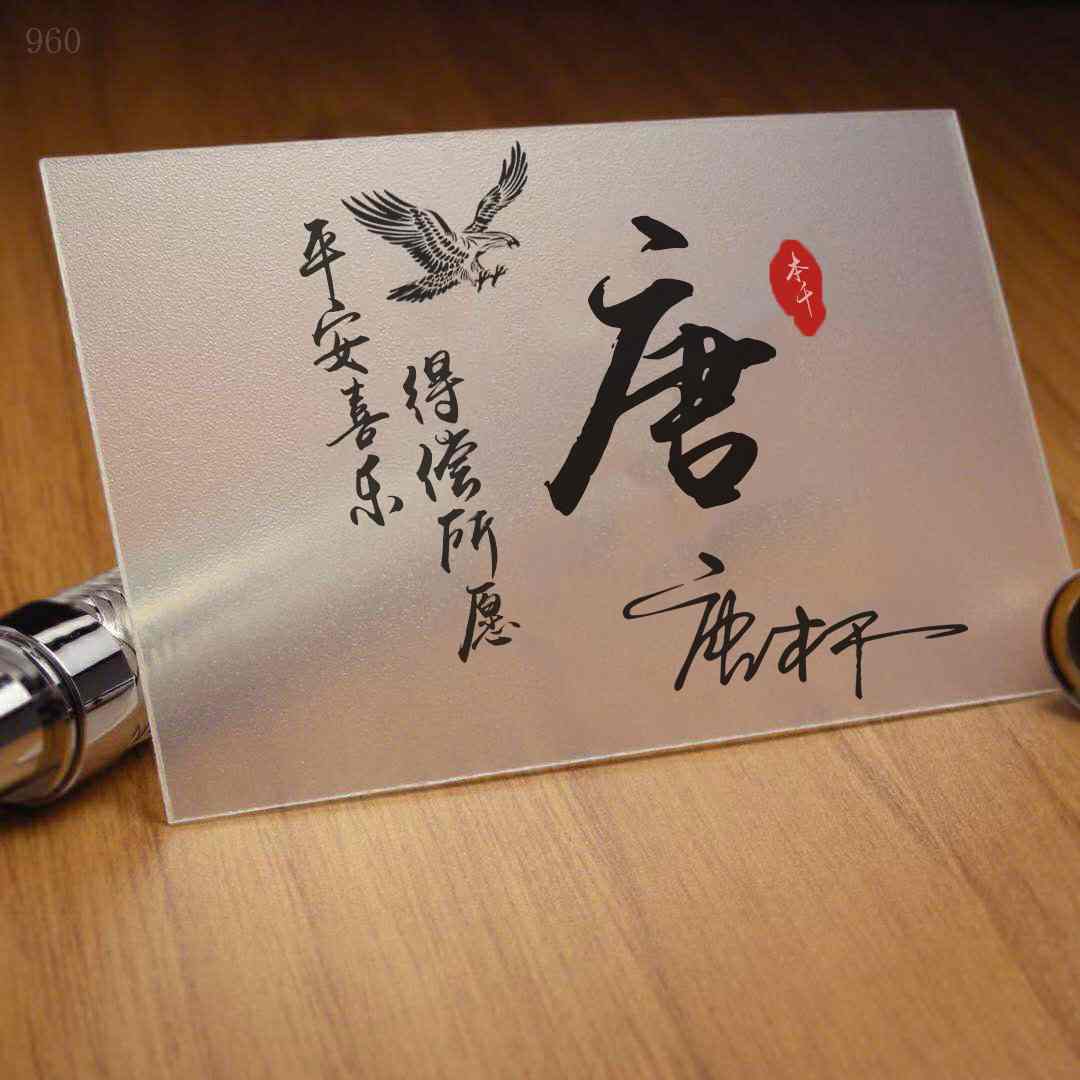 960
平安喜乐
得偿所愿
唐
本千
唐本千